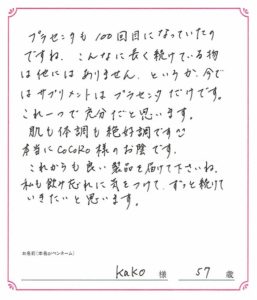 プラセンタも100回目になっていたの
ですね。こんなに長く続けている物
は他にはありません。というか、今で
はサプリメントはプラセンタだけです。
これ一つで充分だと思います。
肌も体調も絶好調です
本当にCoCoRo様のお陰です。
これからも良い製品を届けて下さいね。
私も飲み忘れに気をつけて、ずっと続けて
いきたいと思います。
お名前(本名orペンネーム)
kako 様 57 歳